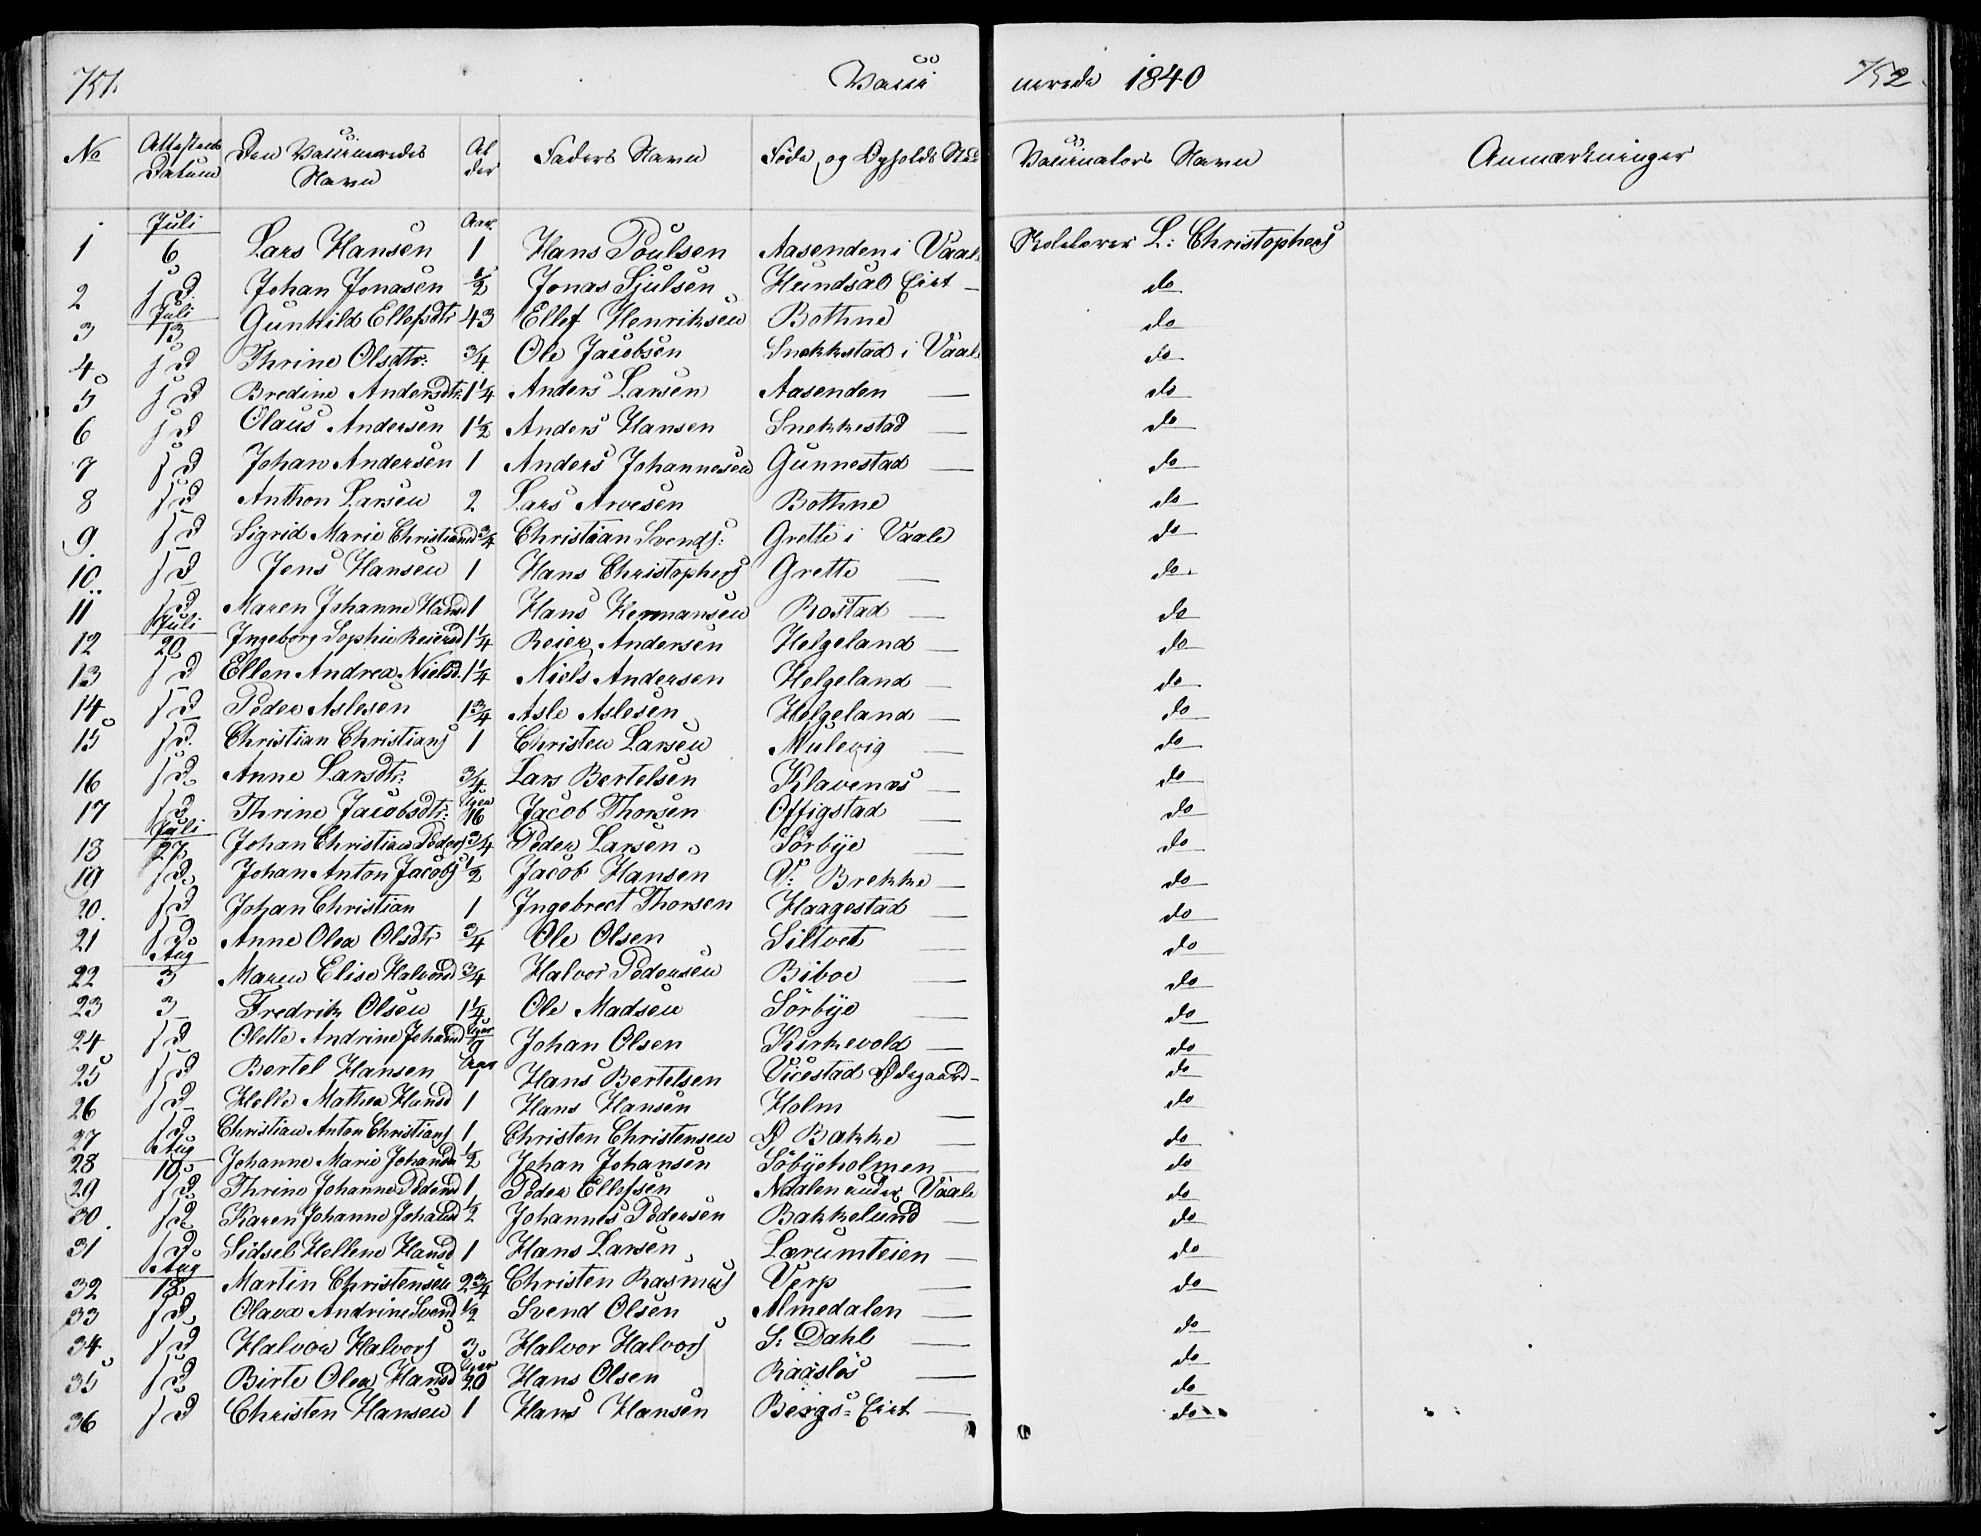 751. Vacci nerede 1840 752.
No Attestens Datum Den Vaccineredes Navn Al der Faders Navn Føde og Opholds Sted Vaccinators Navn Anmærkninger
Juli Aar
1 6 Lars Hansen 1 Hans Poulsen Aasenden i Vaale Skolelærer L: Christophers
2 s d Johan Jonasen ½ Jonas Sjulsen Hundsal Eiet — do
Juli
3 13 Gunhild Ellefsdtr 43 Ellef Henriksen Bothne do
4 s d Thrine Olsdtr: ¾ Ole Jacobsen Snekkestad i Vaale do
5 s d Bredine Andersdtr 1¼ Anders Larsen Aasenden — do
6 s d Olaus Andersen 1½ Anders Hansen Snekkestad — do
7 s d Johan Andersen 1 Anders Johannesen Gunnestad — do
8 s d Anthon Larsen 2 Lars Arvesen Bothne do
9 s d Sigrid Marie Christiansd ¾ Christian Svends: Grette i Vaale do
10 s d Jens Hansen 1 Hans Christophers Grette — do.
11 s d Maren Johanne Hansd 1 Hans Hermansen Rostad — do
Juli
12 20 Ingeborg Sophie Reiersd 1¼ Reier Andersen Helgeland — do
13 s d Ellen Andrea Nielsd. 1¼ Niels Andersen Helgeland — do
14 s d Peder Aslesen 1¾ Asle Aslesen Helgeland — do
15 s d. Christian Christians 1 Christen Larsen Mulevig — do
16 s d Anne Larsdtr. ¾ Lars Bertelsen Klavenæs — do
17 s d Thrine Jacobsdtr: Uger 16 Jacob Thorsen Offigstad — do
Juli
18 27 Johan Christian Peders ¾ Peder Larsen Sørbye — do
19 s d Johan Anton Jacobs ½ Jacob Hansen V: Brekke — do
20. s d Johan Christian 1 Ingebrect Thorsen Haagestad — do
21 s d Anne Olea Olsdtr ¾ Ole Olsen Siltvet — do
Aug
22 3 Maren Elise Halvorsd ¾ Halvor Pedersen Biboe — do
23 3 Fredrik Olsen 1¼ Ole Madsen Sørbye — do
24 s d Olette Andrine Johansd Uger 9 Johan Olsen Kirkevold — do
25 s d Bertel Hansen Aar 1 Hans Bertelsen Vicestad Ødegaard — do
26 s d Helle Mathea Hansd 1 Hans Hansen Holm — do
27 s d Christian Anton Christians 1 Christen Christensen Ø Bakke — do
Aug
28 10 Johanne Marie Johansd ½ Johan Johansen Søbyeholmen — do
29 s d Thrine Johanne Pedersd 1 Peder Ellefsen Aadalen under Vaale do
30. s d Karen Johanne Johansd ½ Johannes Pedersen Bakkelund — do
31 s d Sidsel Hellene Hansd 1 Hans Larsen Lærumteien — do
Aug
32 18 Martin Christensen 2¾ Christen Rasmus Verp — do
33 s d Olava Andrine Svends ½ Svend Olsen Almedalen — do
34 s d Halvor Halvors 3 Halvor Halvors S: Dahl — do
35 s d Birte Olea Hansd Uger 20 Hans Olsen Raasløs — do
36 s d Christen Hansen 1 Hans Hansen Bergs= Eiet — do